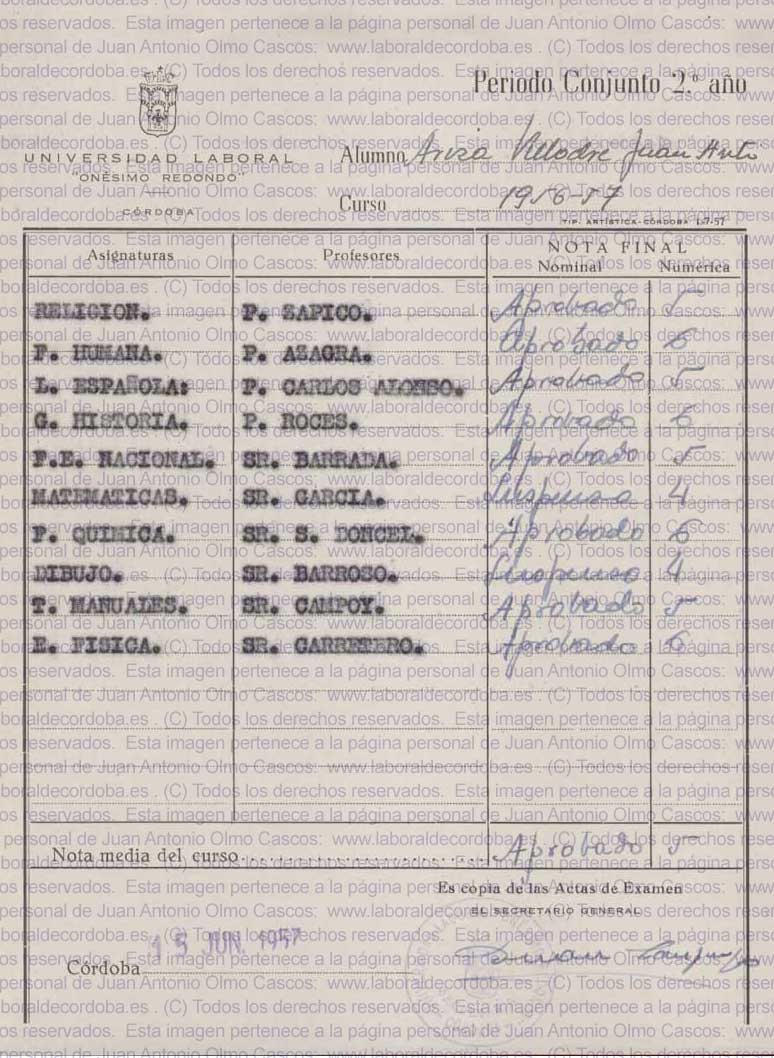 Periodo Conjunto 2.º año
UNIVERSIDAD LABORAL
"ONÉSIMO REDONDO"
CÓRDOBA
Alumno Ariza Juan Anto
Curso 1956-57
TIP. ARTÍSTICA-CÓRDOBA 1-7-57
Asignaturas Profesores NOTA FINAL
Nominal Numérica
RELIGION. P. ZAPICO. Aprobado 5
F. HUMANA. P. AZAGRA. Aprobado 6
L. ESPAÑOLA: P. CARLOS ALONSO. Aprobado 5
G. HISTORIA. P. ROCES. Aprobado 6
F.E. NACIONAL. SR. BARRADA. Aprobado 5
MATEMATICAS. SR. GARCIA. Suspenso 4
F. QUIMICA. SR. S. DONCEL. Aprobado 6
DIBUJO. SR. BARROSO. Suspenso 4
T. MANUALES. SR. CAMPOY. Aprobado 5
E. FISICA. SR. CARRETERO. Aprobado 6
Nota media del curso Aprobado 5
Es copia de las Actas de Examen
EL SECRETARIO GENERAL
15 JUN. 1957
Córdoba
Esta imagen pertenece a la página personal de Juan Antonio Olmo Cascos: www.laboraldecordoba.es . (C) Todos los derechos reservados.